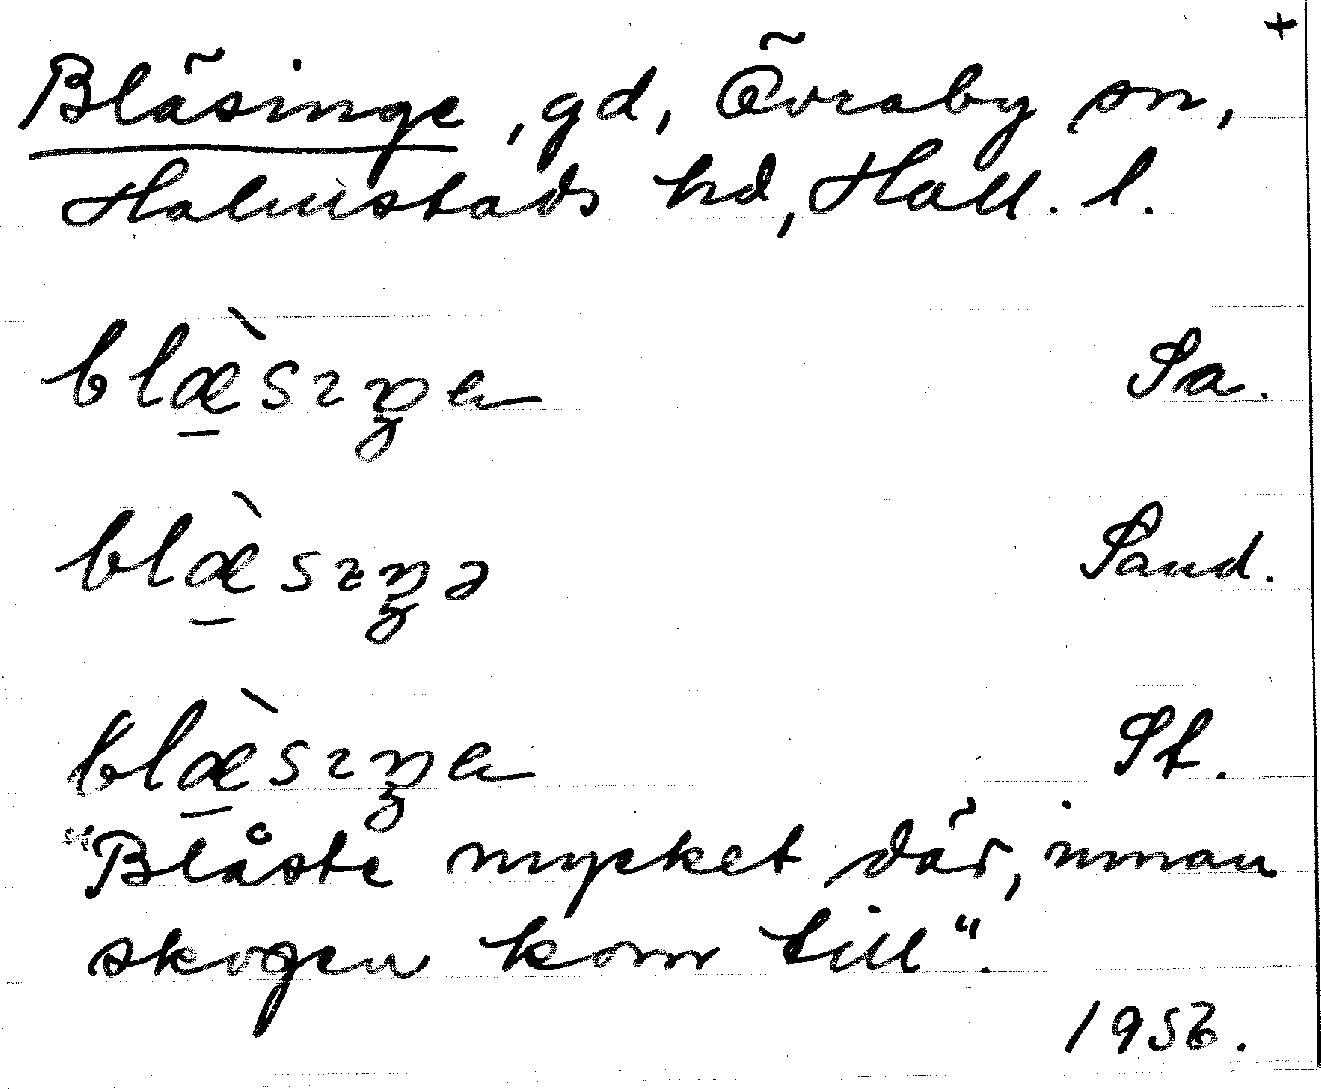 +
Bläsinge, gd, Övraby sn,
Halmstads hd, Hall. l.
blæ̱̀sıŋa Sa.
blæ̱̀sıŋə Sand.
blæ̱̀sıŋa St.
"Blåste mycket där, innan
skogen kom till".
1956.